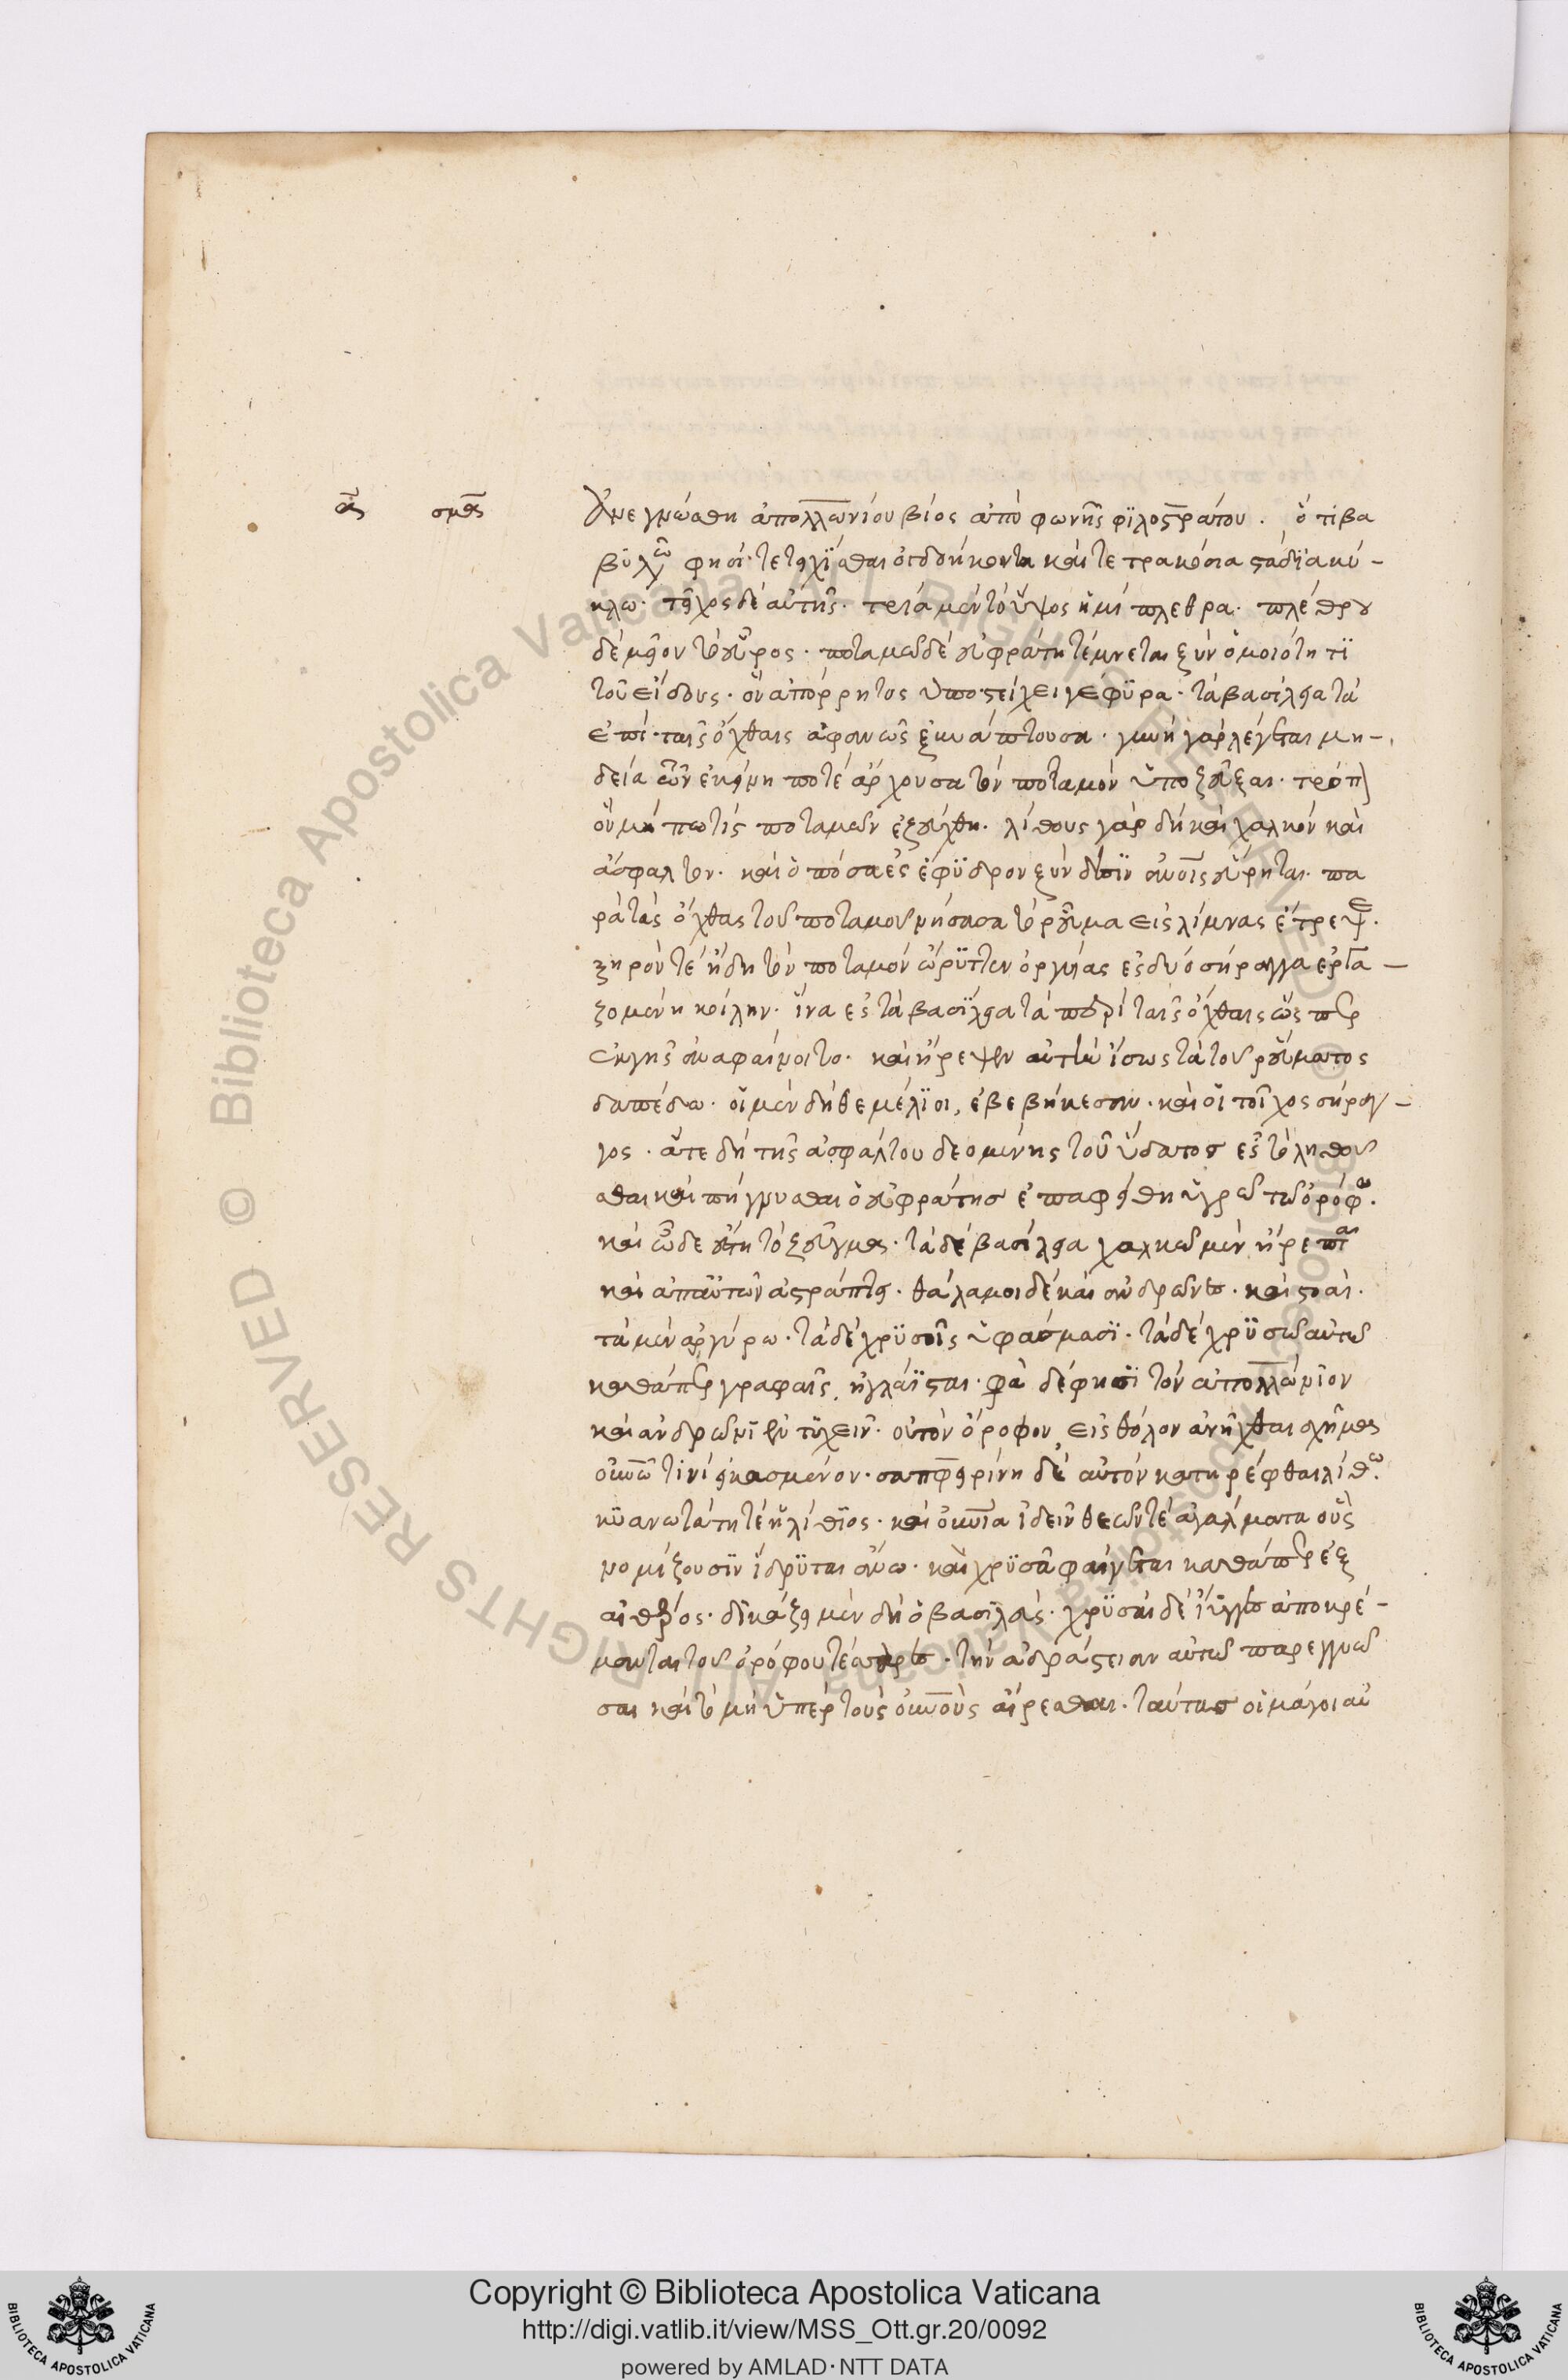 ἀς σμα
Ἀνεγνώσθη ἀπολλωνίου βίος ἀπὸ φωνῆς φιλοστράτου. ὅτι βα
βυλὼ φησὶ τετειχίσθαι ὀγδοήκοντα καὶ τετρακόσια στάδια κύ-
κλω. τεῖχος δὲ αὐτῆς. τρία μὲν τὸ ὕψος ἡμίπλεθρα. πλέθρου
δὲ μεῖον τὸ εὖρος. ποταμῶ δὲ εὐφράτη τέμνεται ξὺν ὁμοιότητι
τοῦ εἴδους. ὃν ἀπόρρητος ὑποστείχει γέφυρα. τὰ βασίλεια τὰ
ἐπὶ ταῖς ὄχθαις ἀφανῶς ξυνάπτουσα. γυνὴ γὰρ λέγεται μη-
δεία τῶν ἐκείνη ποτὲ ἄρχουσα τὸν ποταμὸν ὑποζεῦξαι. τρόπ
ὃν μήπω τίς ποταμῶν ἐζεύχθη. λίθους γὰρ δὴ καὶ χαλκὸν καὶ
ἄσφαλτον. καὶ ὁπόσα ἐς ἔφυδρον ξύνδεσιν ἀνοῖς εὕρηται. πα
ρὰ τὰς ὄχθας τοῦ ποταμοῦ νήσασα τὸ ῥεῦμα εἰς λίμνας ἔτρεψε.
ξηρόν τε ἤδη τὸν ποταμὸν ὤρυττεν ὀργυιὰς ἐς δυό σήραγγα ἐργα-
ζομένη κοίλην. ἵνα ἐς τὰ βασίλεια τὰ περὶ ταῖς ὄχθαις ὥσπερ
ἐκ γῆς ἀναφαίνοιτο. καὶ ἤρεψεν αὐτὴν ἴσως τὰ τοῦ ῥεύματος
δαπέδω. οἱ μὲν δὴ θεμέλιοι, ἐβεβήκεσαν. καὶ οἱ τοῖχος σήραγ-
γος. ἅτε δὴ τῆς ἀσφάλτου δεομένης τοῦ ὕδατος ἐς τὸ λιθοῦ
σθαι καὶ πήγνυσθαι ὁ εὐφράτης ἐπαφείθη ὑγρῶ τῶ ὀρόφω.
καὶ ὧδε ἔστη τὸ ζεῦγμα. τὰ δὲ βασίλεια χαλκῶ μὲν ἤρεπται
καὶ ἀπ αὐτῶν ἀστράπτει. θάλαμοι δὲ καὶ ἀνδρῶνες. καὶ στοαὶ.
τὰ μὲν ἀργύρω. τὰ δὲ χρυσοῖς ὑφάσμασι. τὰ δὲ χρυσῶ αὐτῶ
καθάπερ γραφαῖς, ἠγλάϊσται. φα δέ φησι τὸν ἀπολλώνιον
καὶ ἀνδρῶνι ἐντυχεῖν. οὗ τὸν ὄροφον, εἰς θόλον ἀνῆχθαι σχῆμα
οὐνῶ τινὶ εἰκασμένον. σαπφειρίνη δὲ αὐτὸν κατηρέφθαι λίθω.
κυανωτάτη τὲ ἡ λίθος. καὶ οὐνία ἰδεῖν θεῶν τὲ ἀγάλματα οὓς
νομίζουσιν ἵδρυται ἄνω. καὶ χρυσᾶ φαίνεται καθάπερ ἐξ
αἰθέρος. δικάζει μὲν δὴ ὁ βασιλεὺς. χρυσαῖ δὲ ἴυγγες ἀποκρέ-
μανται τοῦ ὀρόφου τέσσαρες. τὴν ἀδράστειαν αὐτῶ παρεγγυῶ
σαι καὶ τὸ μὴ ὑπὲρ τοὺς ἀνοὺς αἴρεσθαι. ταύτας οἱ μάγοι αὐ
Copyright © Biblioteca Apostolica Vaticana
http://digi.vatlib.it/view/MSS_Ott.gr.20/0092
powered by AMLAD·NTT DATA
BIBLIOTECA APOSTOLICA VATICANA
BIBLIOTECA APOSTOLICA VATICANA
© Biblioteca Apostolica Vaticana ALL RIGHTS RESERVED
© Biblioteca Apostolica Vaticana ALL RIGHTS RESERVED